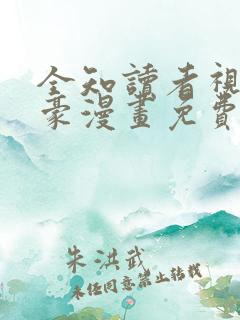 全知讀者視
豪漫畫免費
朱洪武
未经同意禁止转载